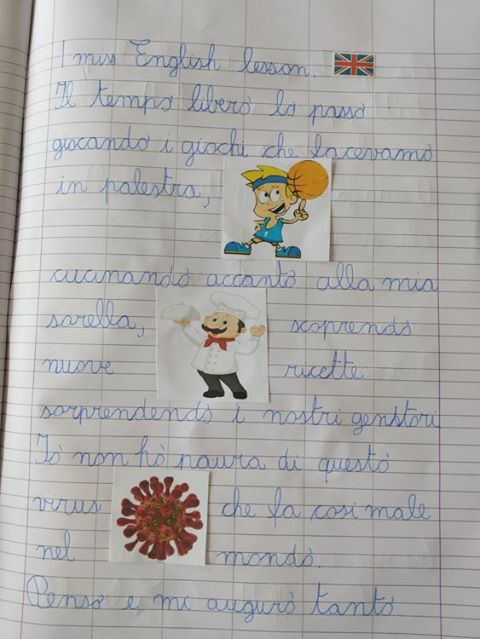 I miss English lesson.
Il tempo libero lo passo
giocando i giochi che facevamo
in palestra,
cucinando accanto alla mia
sorella, scoprendo
nuove ricette
sorprendendo i nostri genitori
Io non ho paura di questo
virus che fa così male
nel mondo.
Penso e mi auguro tanto